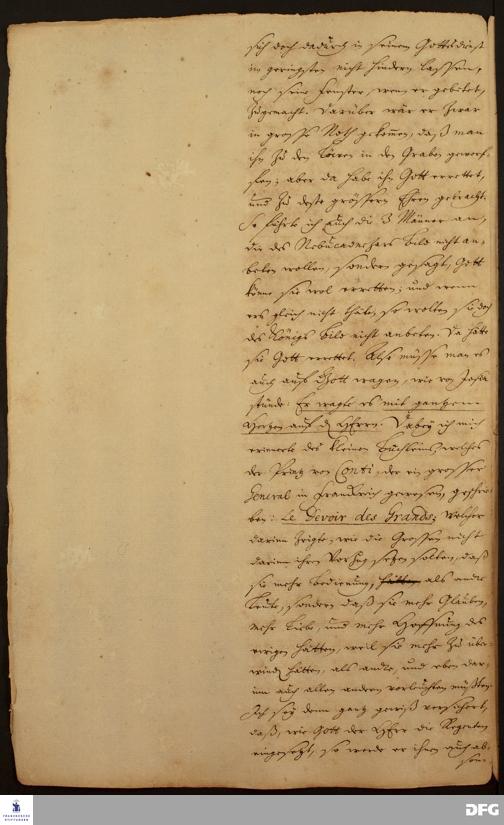 sich doch dadurch in seinem Gottesdienst
im geringsten nicht hindern lassen,
noch seine Fenster, wenn er gebetet,
zugemacht. Darüber wär er zwar
in grosse Noth gekommen, daß man
ihn zu den Löwen in den Graben geworf-
fen; aber da habe ihn Gott errettet,
und zu desto grössern Ehren gebracht.
So führte ich auch die 3 Männer an,
die des Nebucadnezars Bild nicht an-
beten wollen, sondern gesagt, Gott
könne sie wol erretten; und wenn
ers gleich nicht thäte, so wolten sie doch
des Königs Bild nicht anbeten. Da hätte
sie Gott errettet. Also müsse man es
auch auf Gott wagen, wie von Josia
stünde: Er wagte es mit gantzem
Hertzen auf d. HErrn. Dabey ich mich
erinnerte des kleinen Büchleins, welches
der Printz von Conti, der ein grosser
General in Franckreich gewesen, geschrie-
ben: Le Devoir des Grands; welcher
darinn zeigte, wie die Grossen nicht
darinn ihren Vorzug setzen solten, daß
sie mehr Bedienung, als andre
Leute, sondern daß sie mehr Glauben,
mehr Liebe, und mehr Hoffnung des
ewigen hätten, weil sie mehr zu über-
winden hätten, als andre, und eben dar-
um auch allen andern vorleuchten müßten.
Ich sey denn gantz gewiß versichert,
daß, wie Gott der HErr die Regenten
eingesetzt, so werde er ihnen auch ab-
FRANCKESCHE
STIFTUNGEN
DFG